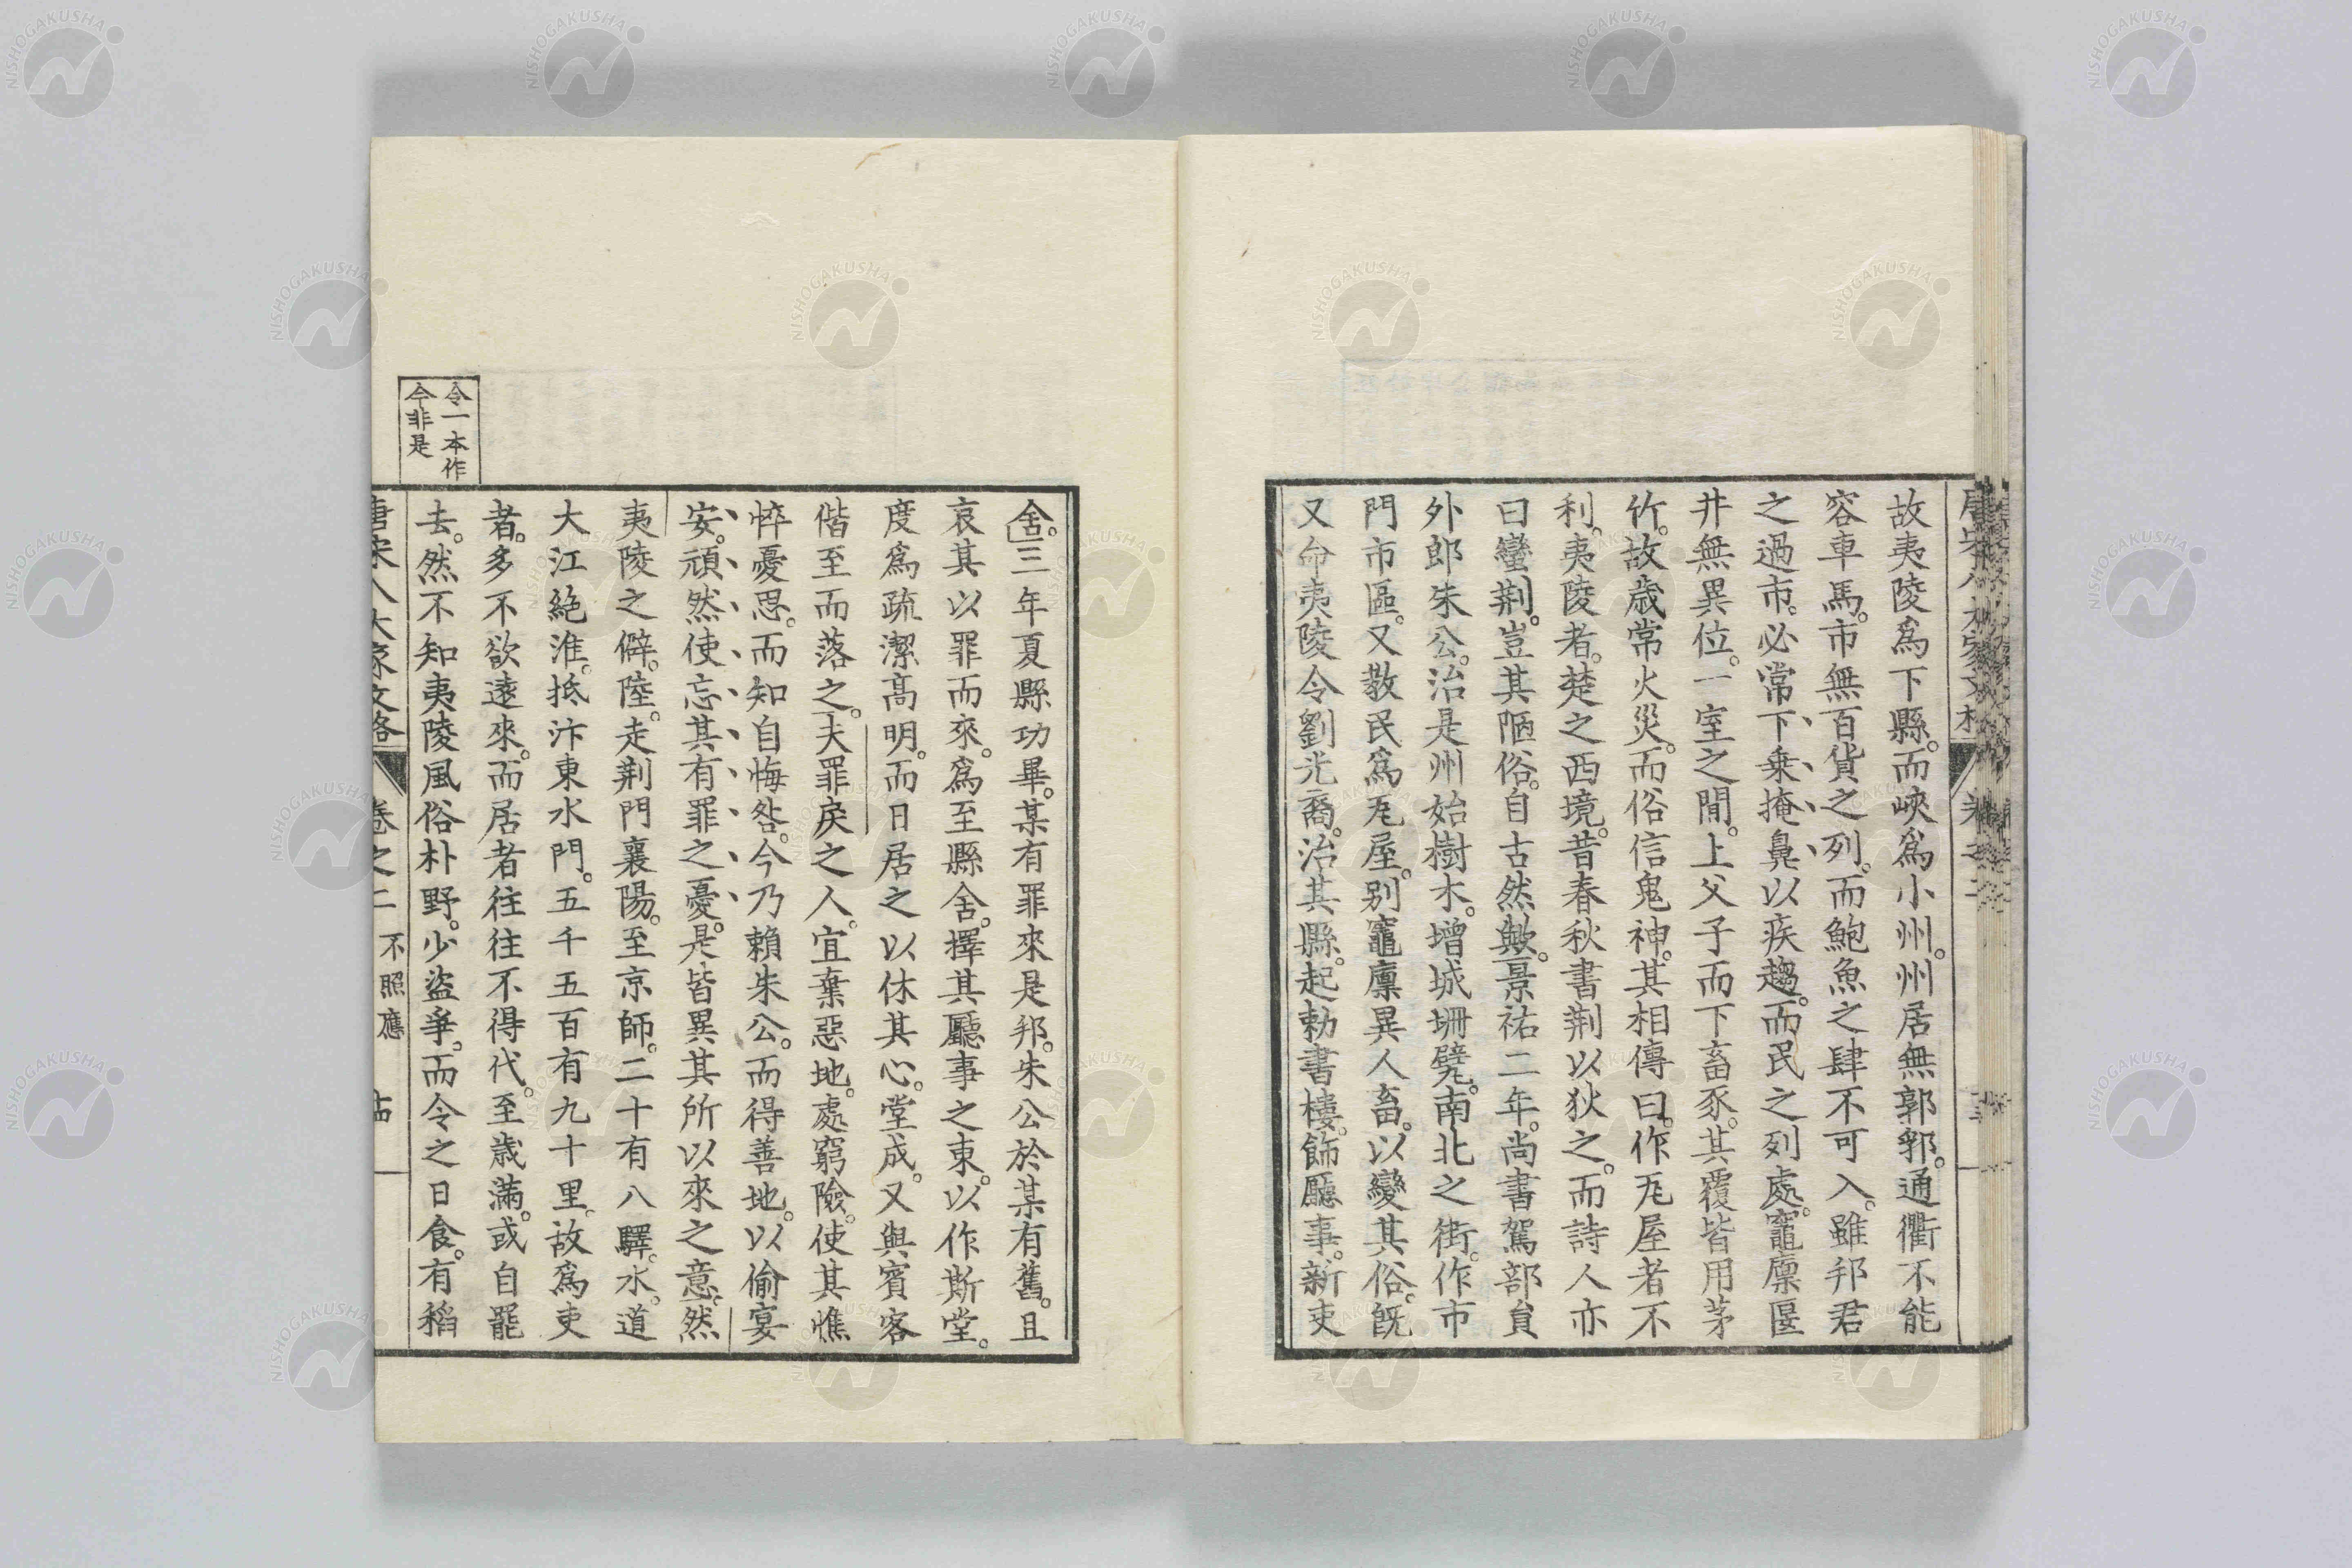 故夷陵爲下縣。而峽爲小州。州居無郭郛。通衢不能
容車馬。市無百貨之列。而鮑魚之肆不可入。雖邦君
之過市。必常下乗、掩鼻、以疾趨。而民之列處。竈廩匽
井無異位。一室之間。上父子而下畜豕。其覆皆用茅
竹。故歳常火災。而俗信鬼神。其相傳曰。作瓦屋者不
利。夷陵者。楚之西境。昔春秋書荆以狄之。而詩人亦
曰蠻荆。豈其陋俗。自古然歟。景祐二年。尚書駕部貟
外郎朱公。治是州始樹木。増城堋甓。南北之街。作市
門市區。又敎民爲瓦屋。别竈廩異人畜。以變其俗。旣
又命夷陵令劉光裔。治其縣。起勅書樓。飾廳事。新吏
舍。三年夏縣功畢。某有罪來是邦。朱公於某有舊。且
哀其以罪而來。爲至縣舍。擇其廳事之東。以作斯堂。
度爲疏潔髙明。而日居之以休其心。堂成。又與賓客
偕至而落之。夫罪戾之人。宜棄惡地。處窮險。使其憔
悴憂思。而知自悔咎。今乃賴朱公。而得善地。以偷宴
安。頑然使忘其有罪之憂。是皆異其所以來之意。然
夷陵之僻。陸。走荆門襄陽。至京師。二十有八驛。水。道
大江絶淮。抵汴東水門。五千五百有九十里。故爲吏
者。多不欲逺來。而居者往往不得代。至歳滿。或自罷
去。然不知夷陵風俗朴野。少盜爭。而令之日食。有稻
令一本作
今非是
唐宋八大家文格
卷之二
不照應